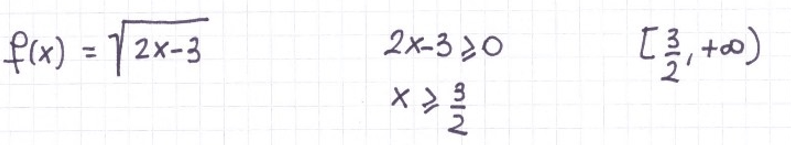 f(x) = √(2x-3)    2x-3 ⩾ 0    [3/2, +∞)
x ⩾ 3/2